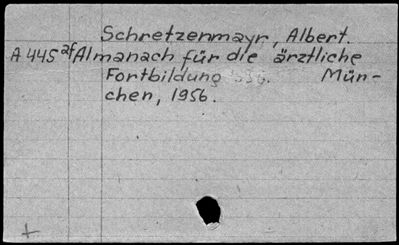 Schretzenmayr, Albert.
A 445 af Almanach für die ärztliche
Fortbildung. Mün-
chen, 1956.